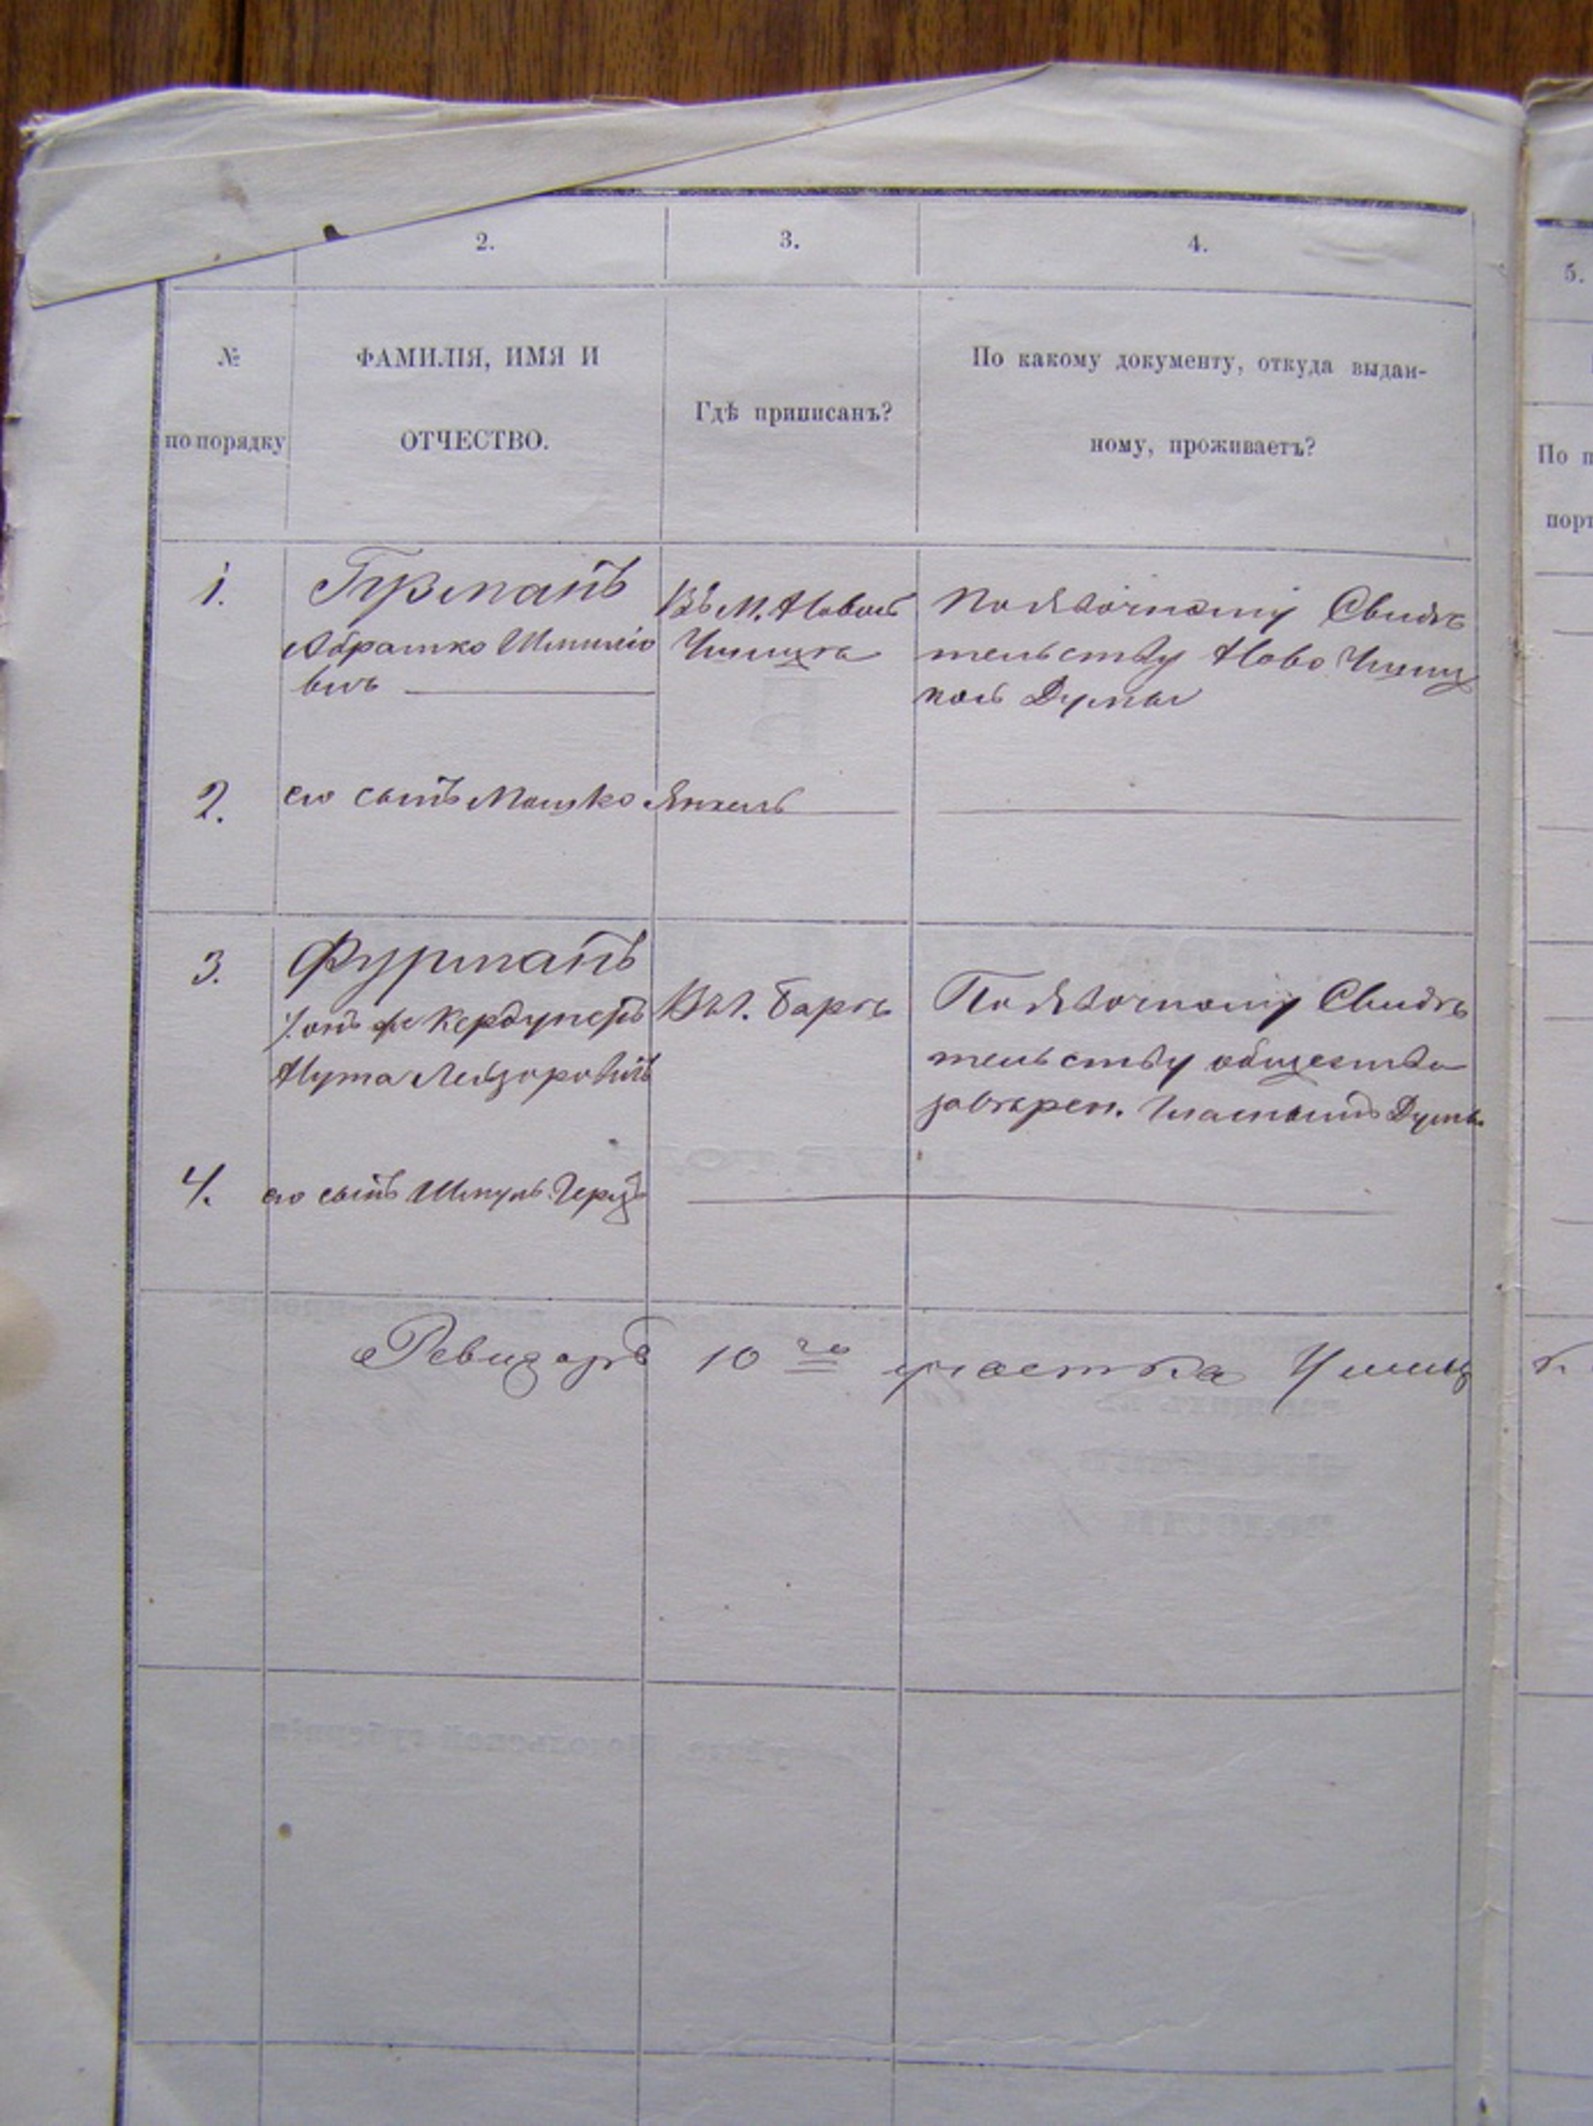 2.
3.
4.
5.
№
по порядку
ФАМИЛІЯ, ИМЯ И
ОТЧЕСТВО.
Гдѣ приписанъ?
По какому документу, откуда выдан-
ному, проживаетъ?
По п
порт
1.
Гузманъ
Абрамко Шмилiо
вичъ
Въ М. Новой
Ушицѣ
По явочному Свидѣ
тельству Ново Ушиц
кой Думы
2.
его сынъ Мошко Янкель
3.
Фурманъ
онъ же Кердунеръ
Нута Лейзоровичъ
Въ г. Барѣ
По явочному Свидѣ
тельству общества
завѣрен. Думы
4.
его сынъ Шмуль Герцъ
Ревизоръ 10 го участка Ушиц